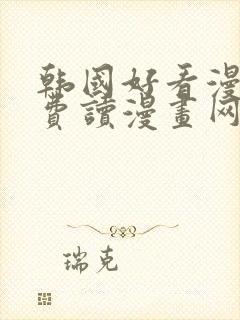 韩國好看漫
費讀漫畫网
瑞克